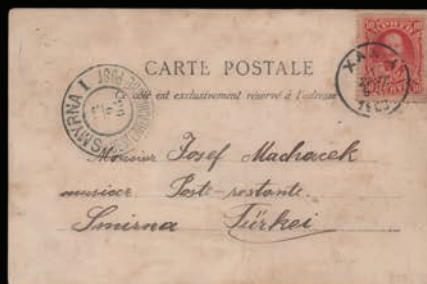 CARTE POSTALE
est exclusivement réservé à l'adresse
SMYRNA I
Monsieur Josef Machacek
musicer Poste-restante.
Smirna Türkei